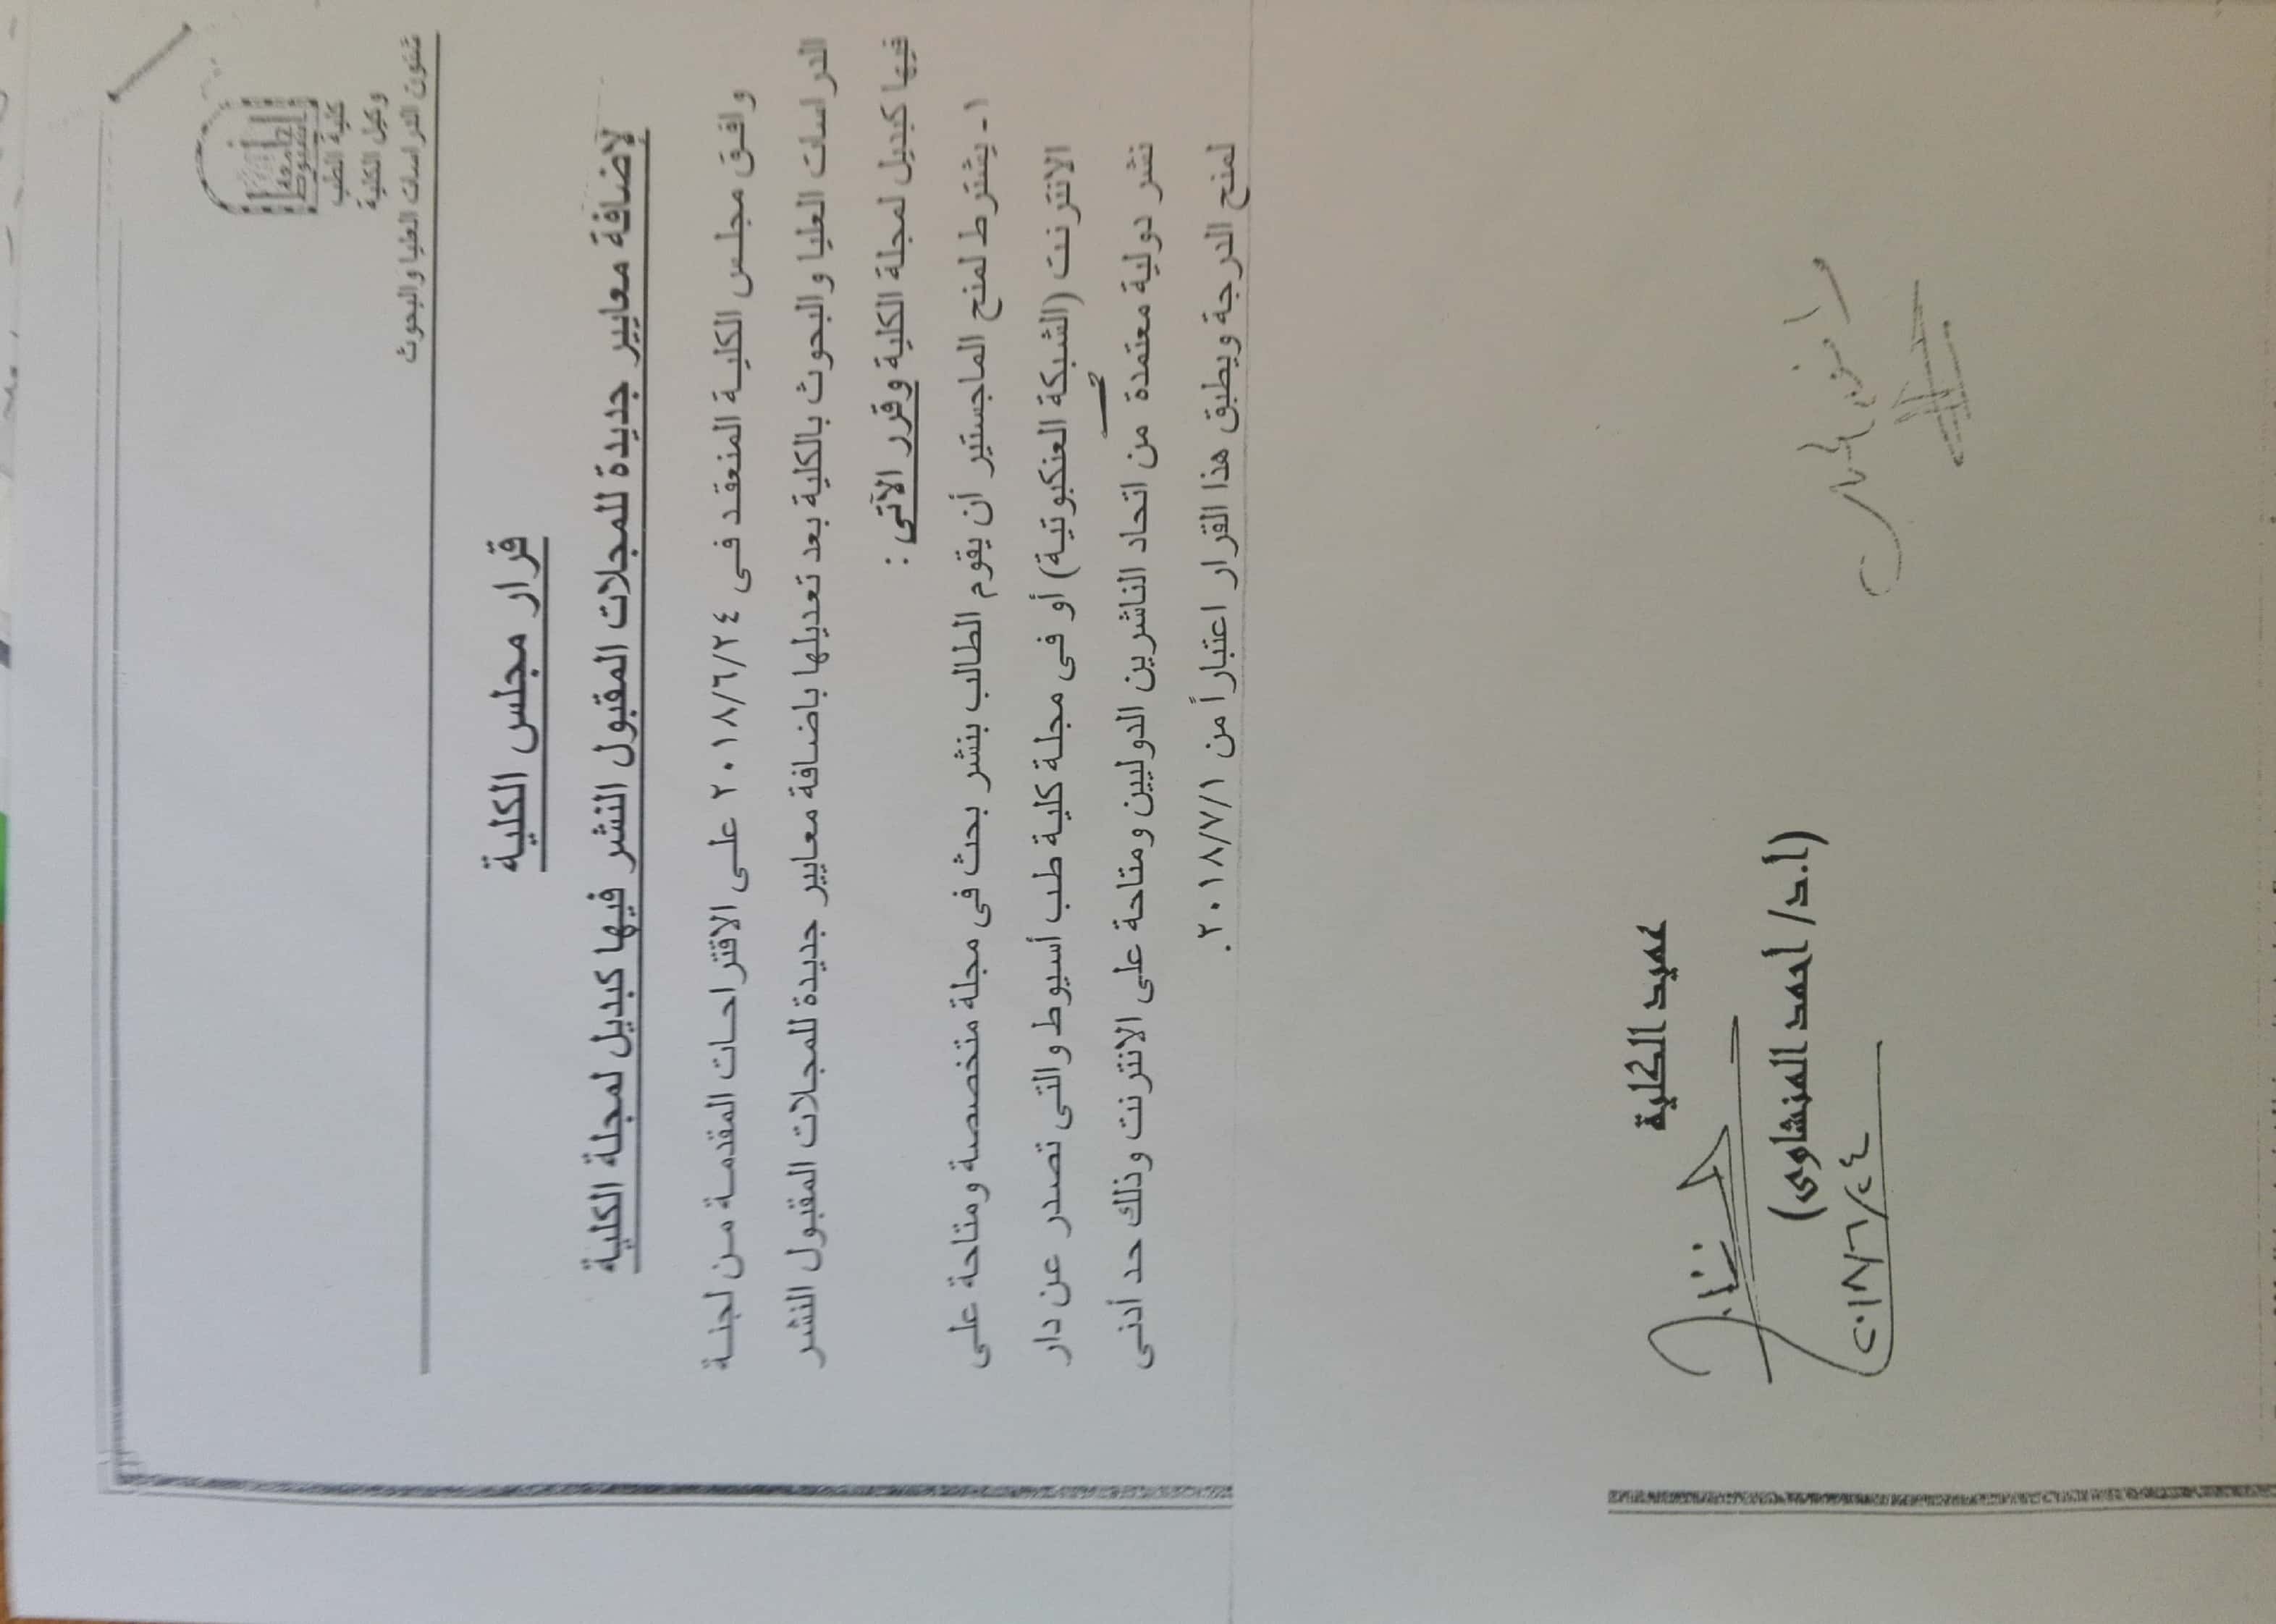 جامعة
أسيوط
كلية الطب
وكيل الكلية
شئون الدراسات العليا والبحوث
قرار مجلس الكلية
لإضافة معايير جديدة للمجلات المقبول النشر فيها كبديل لمجلة الكلية
وافق مجلس الكلية المنعقد فى ٢٠١٨/٦/٢٤ على الاقتراحات المقدمة من لجنة
الدراسات العليا والبحوث بالكلية بعد تعديلها باضافة معايير جديدة للمجلات المقبول النشر
فيها كبديل لمجلة الكلية وقرر الآتى :
١- يشترط لمنح الماجستير أن يقوم الطالب بنشر بحث فى مجلة متخصصة ومتاحة على
الانترنت (الشبكة العنكبوتية) أو فى مجلة كلية طب أسيوط والتى تصدر عن دار
نشر دولية معتمدة من اتحاد الناشرين الدوليين ومتاحة على الانترنت وذلك حد أدنى
لمنح الدرجة ويطبق هذا القرار اعتباراً من ٢٠١٨/٧/١.
عميد الكلية
(أ.د/ أحمد المنشاوى)
٢٠١٨/٦/٢٤